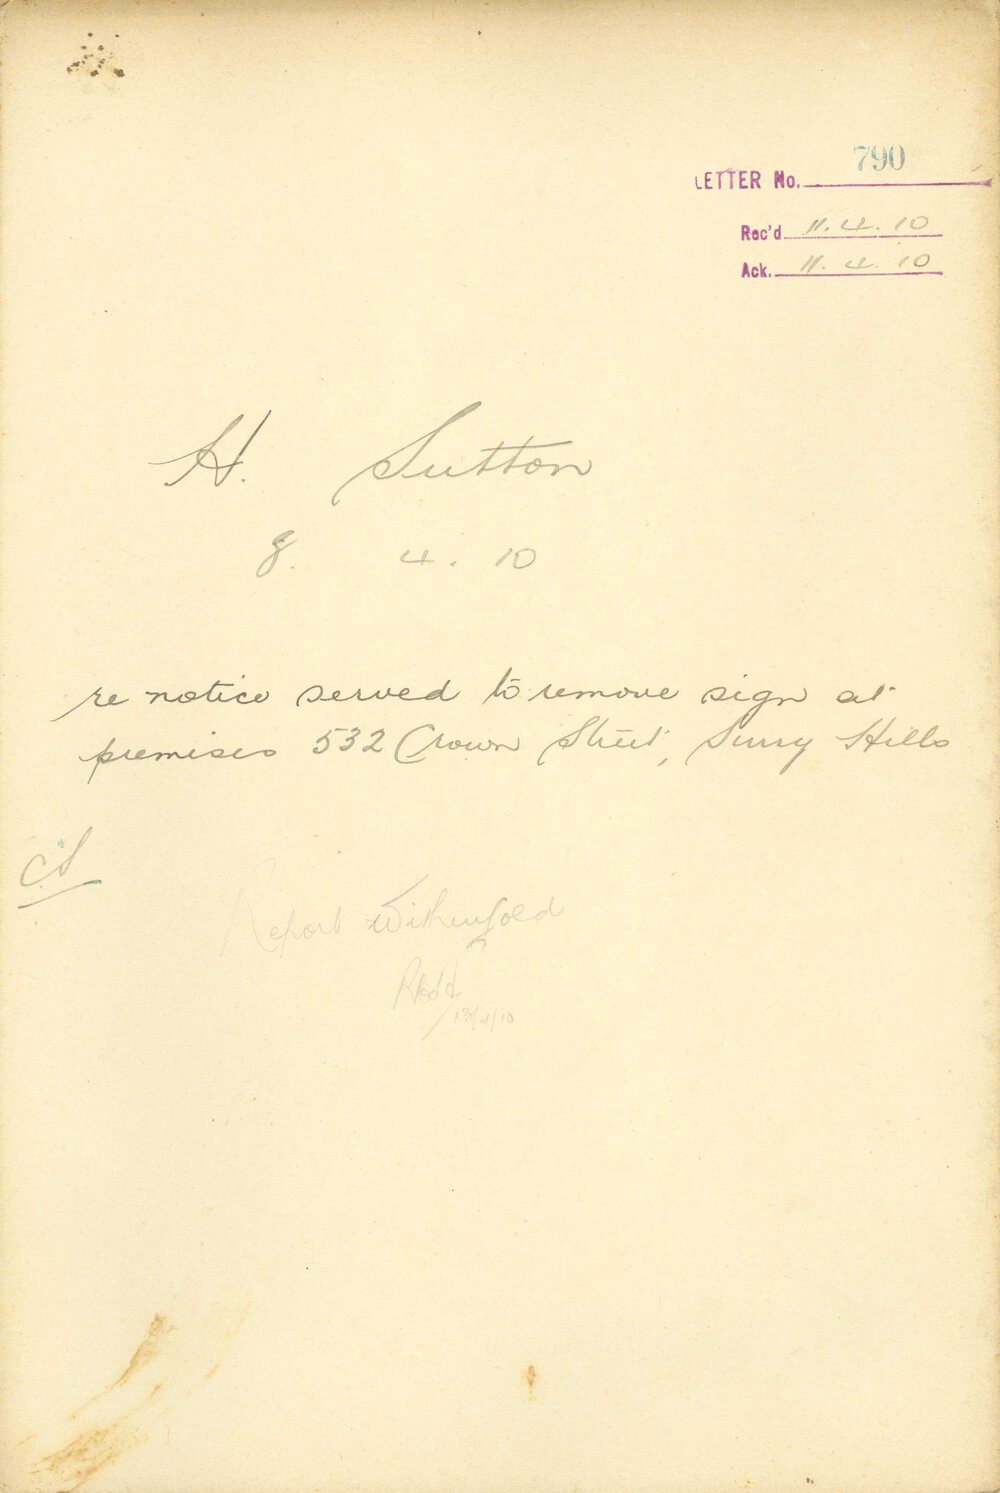 790
LETTER No.
Rec'd 11.4.10
Ack. 11.4.10
H. Sutton
8. 4. 10
re notice served to remove sign at
premises 532 Crown Street, Surry Hills
C.S
Report
13/4/10